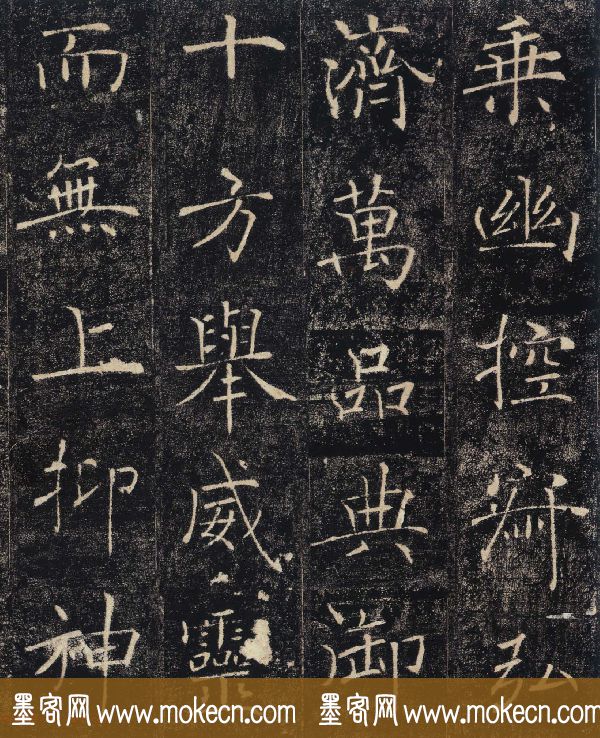 乗幽控寂弘
濟萬品典御
十方舉威靈
而無上抑神
墨客网 www.mokecn.com 墨客网 www.mokecn.com